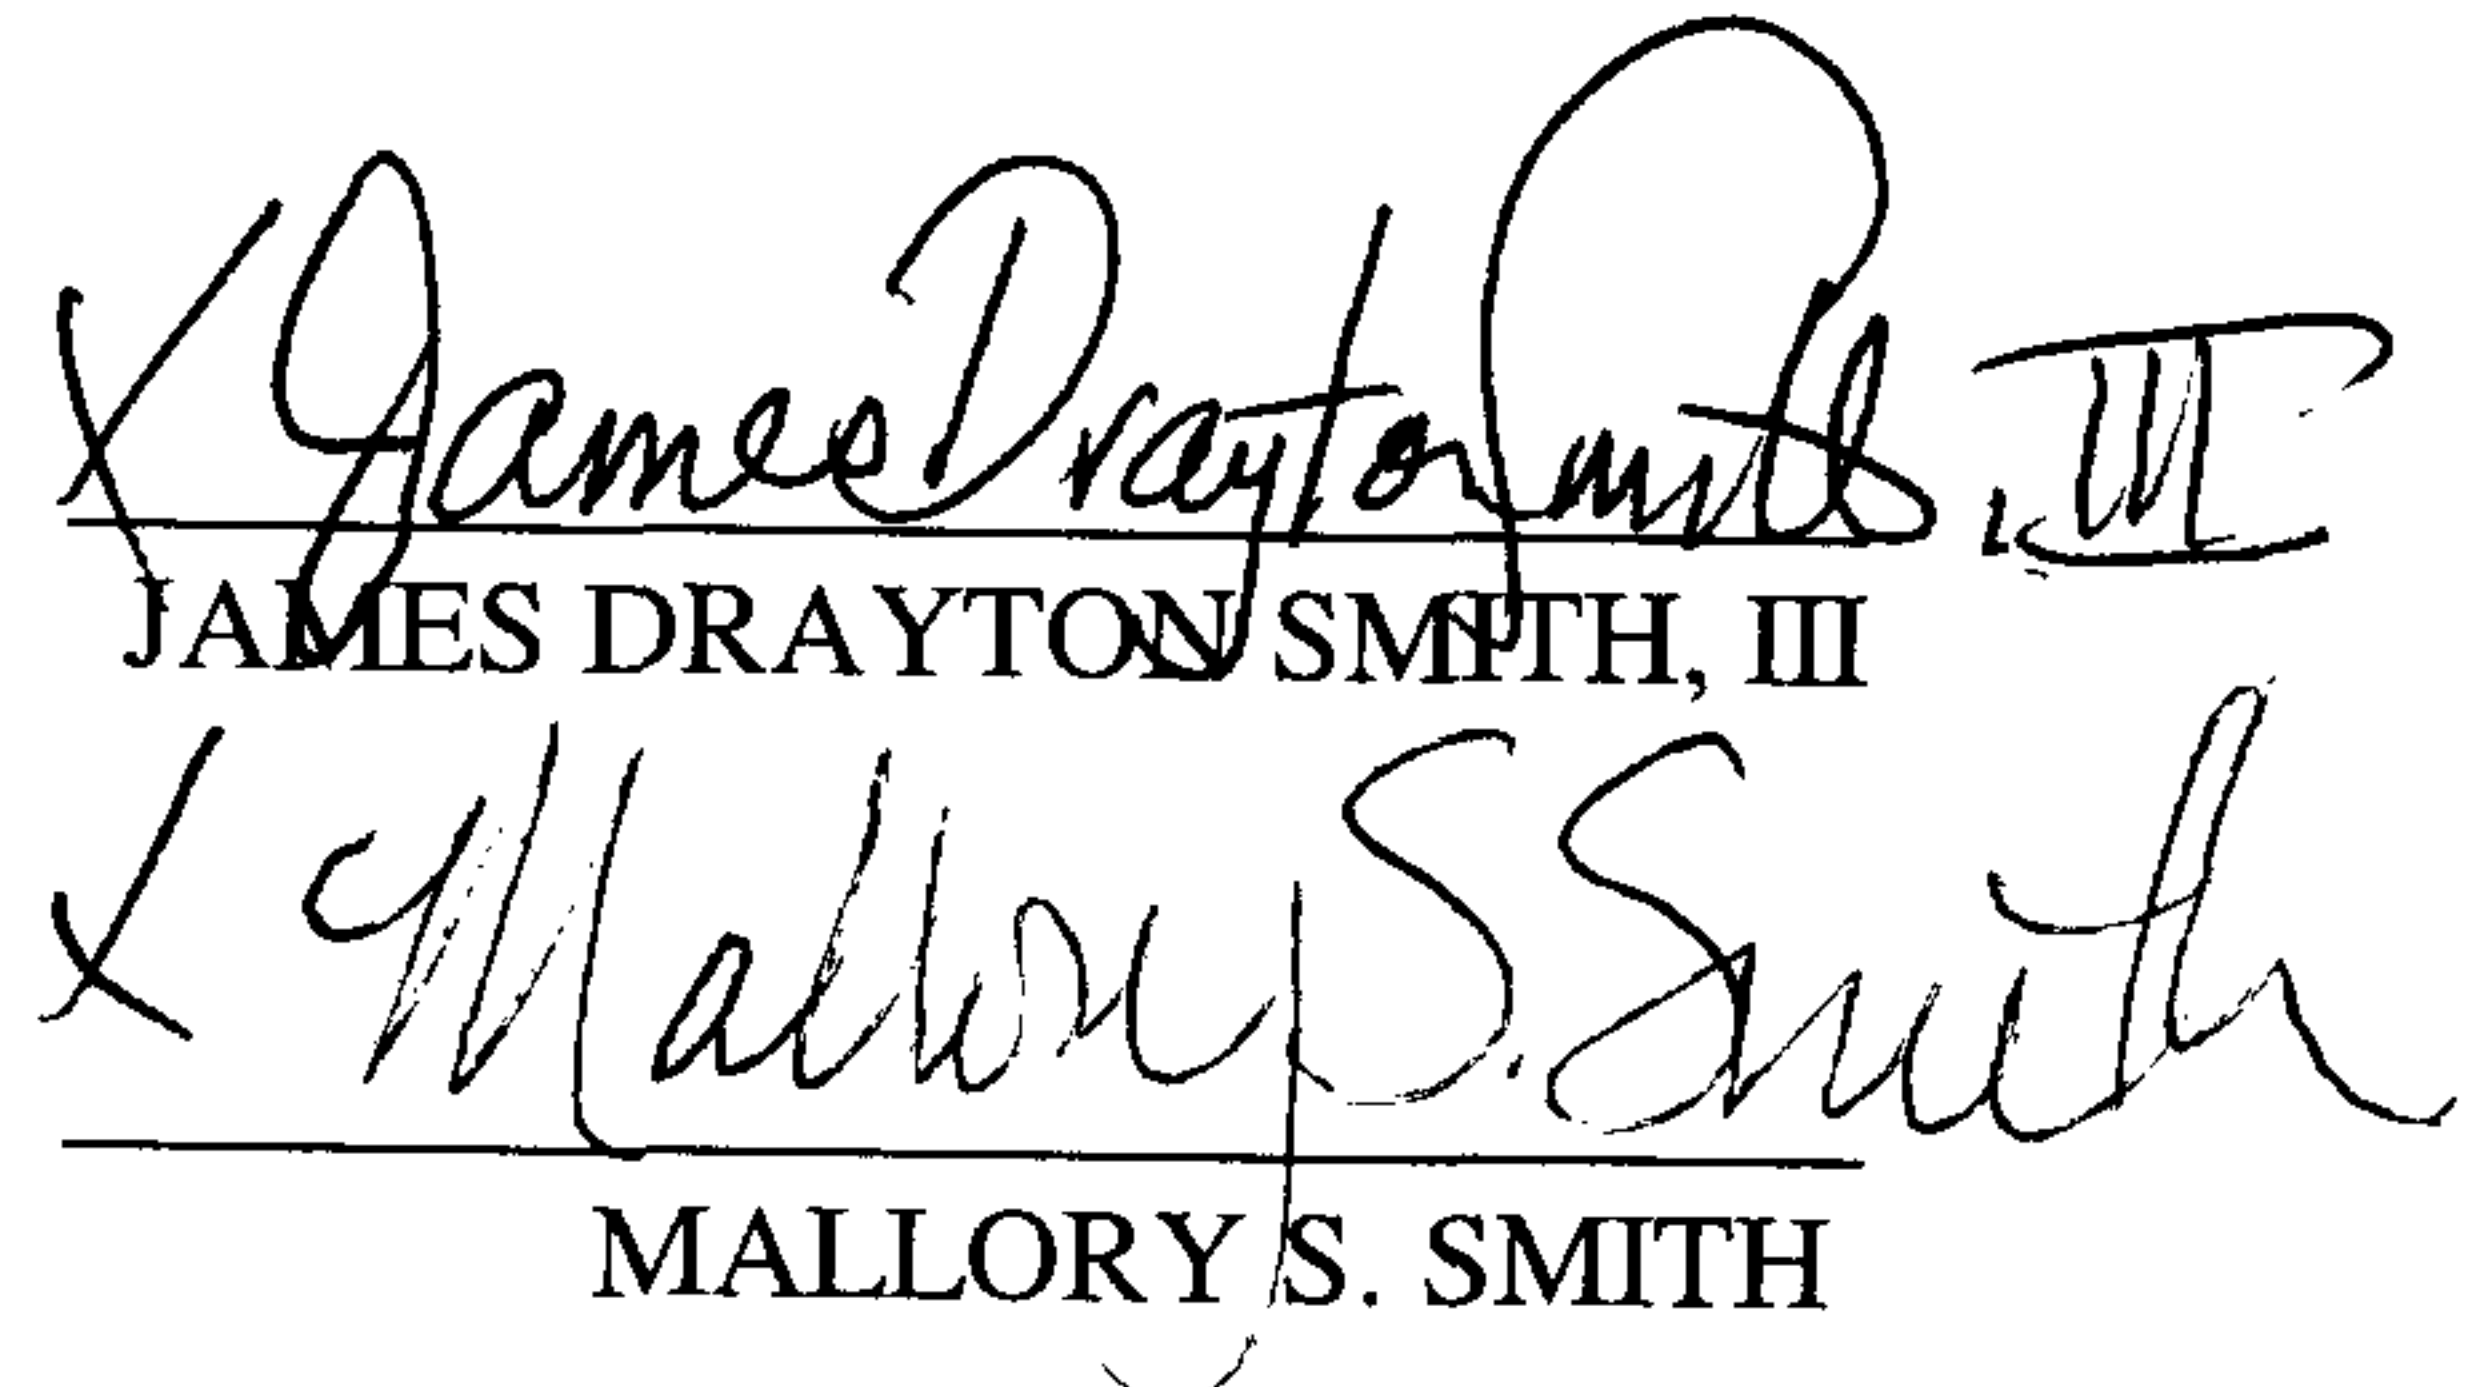 X James Drayton Smith, III
JAMES DRAYTON SMITH, III
X Mallory S. Smith
MALLORY S. SMITH